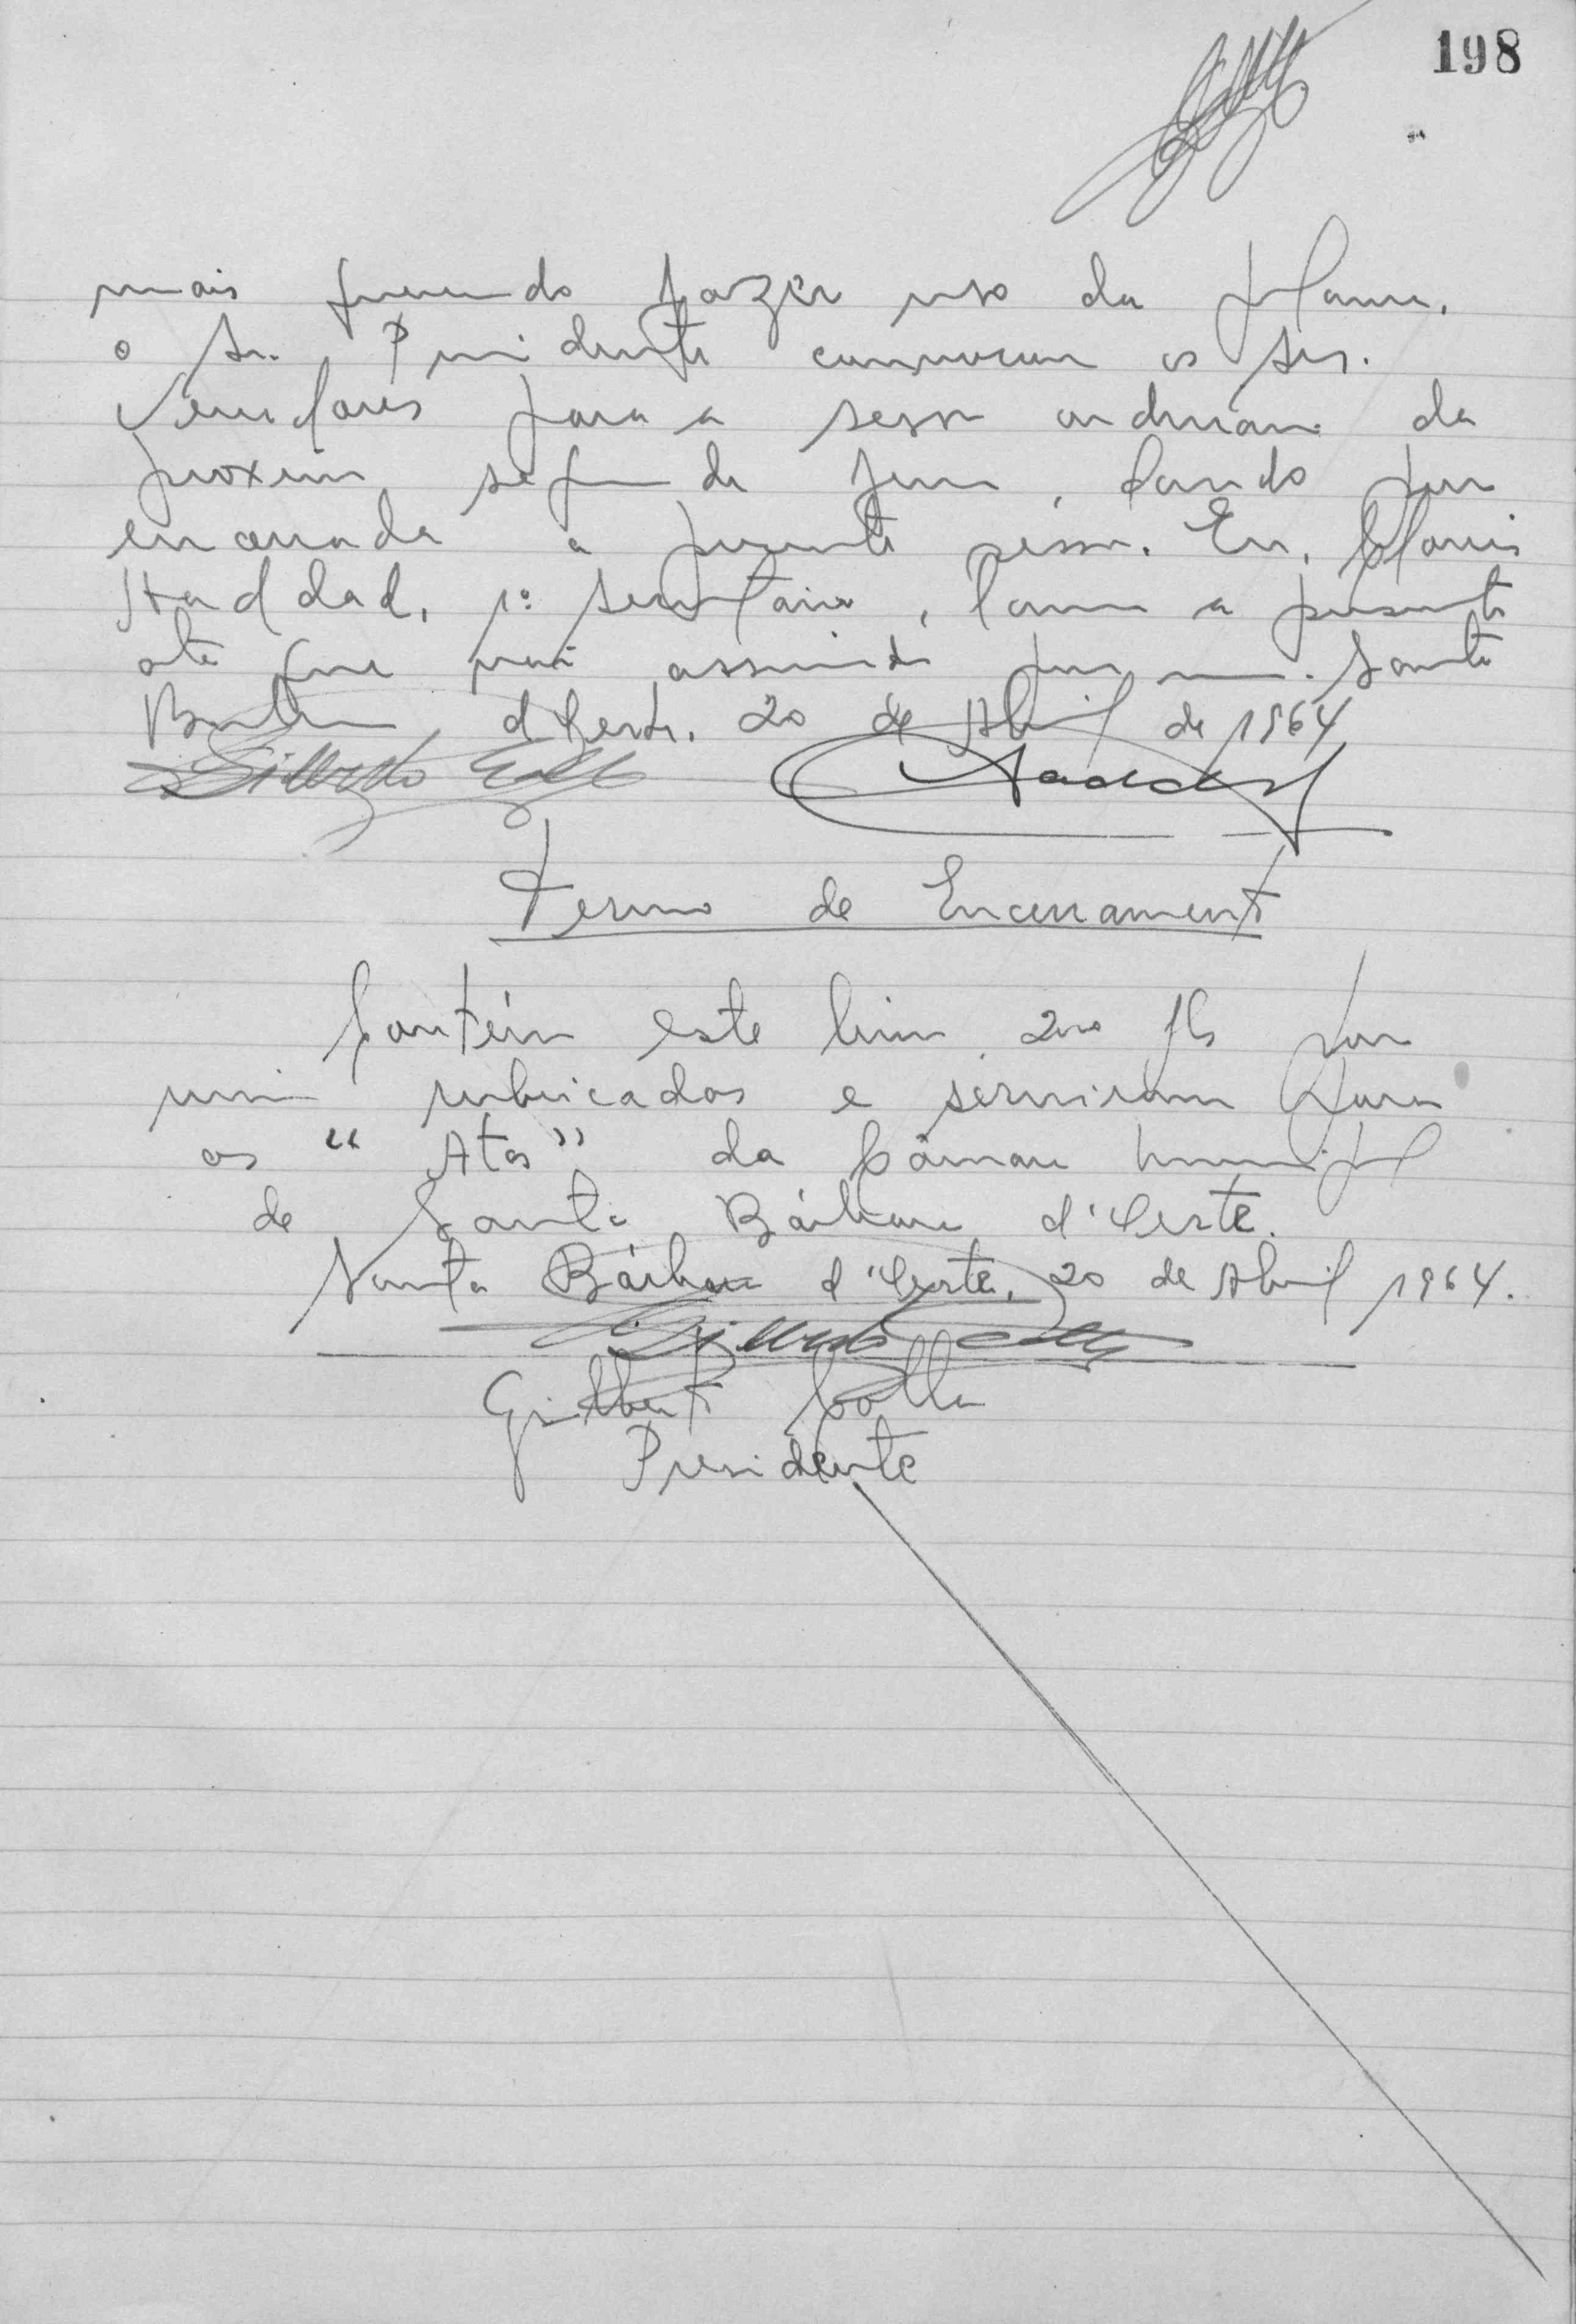 198
mais querendo fazer uso da palavra,
o Sr. Presidente convocou os Srs.
Vereadores para a sessão ordinaria da
proxima segunda feira, dando por
encerrada a presente sessão. Eu, Clovis
Haddad, 1º secretario, lavrei a presente
ata que vai assinada por mim. Santa
Barbara d'Oeste, 20 de Abril de 1964
Gilberto Colla Haddad
Termo de Encerramento
Contém este livro 200 fls por
mim rubricadas e serviram para
as " Atas" da Câmara Municipal
de Santa Bárbara d'Oeste.
Santa Bárbara d'Oeste, 20 de Abril 1964.
Gilberto Colla
Gilberto Colla
Presidente